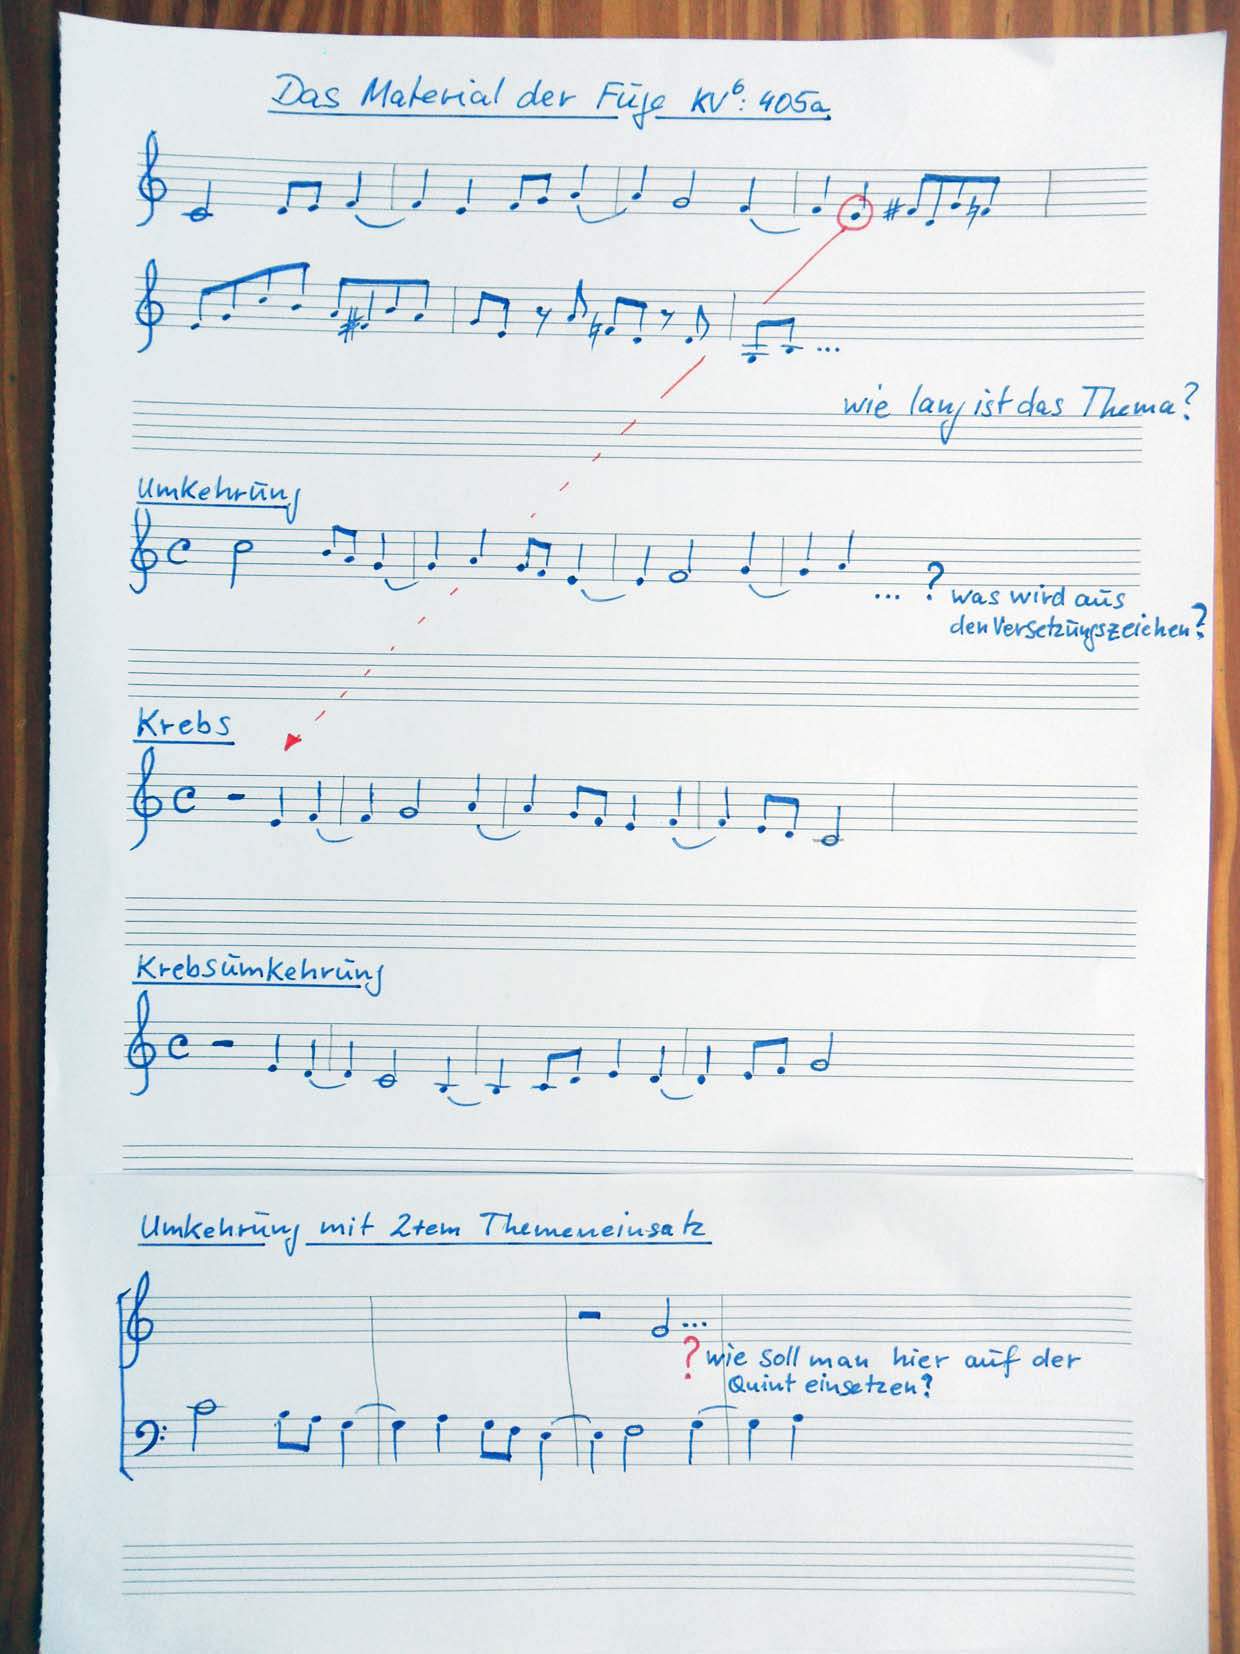 Das Material der Fuge KV⁶: 405a
wie lang ist das Thema?
Umkehrung
... ? was wird aus
den Versetzungszeichen?
Krebs
Krebsumkehrung
Umkehrung mit 2tem Themeneinsatz
...
? wie soll man hier auf der
Quint einsetzen?